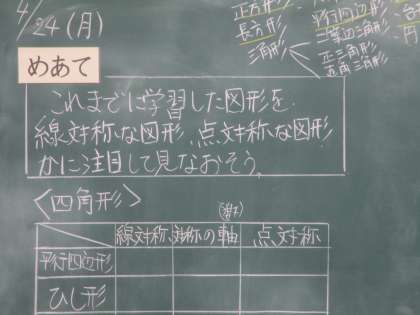 4/24(月)
正方形
長方形
三角形
平行四辺形
二等辺三角形
正三角形
直角三角形
円
めあて
これまでに学習した図形を
線対称な図形、点対称な図形
かに注目して見なおそう。
〈四角形〉
(数)
線対称 対称の軸 点対称
平行四辺形
ひし形